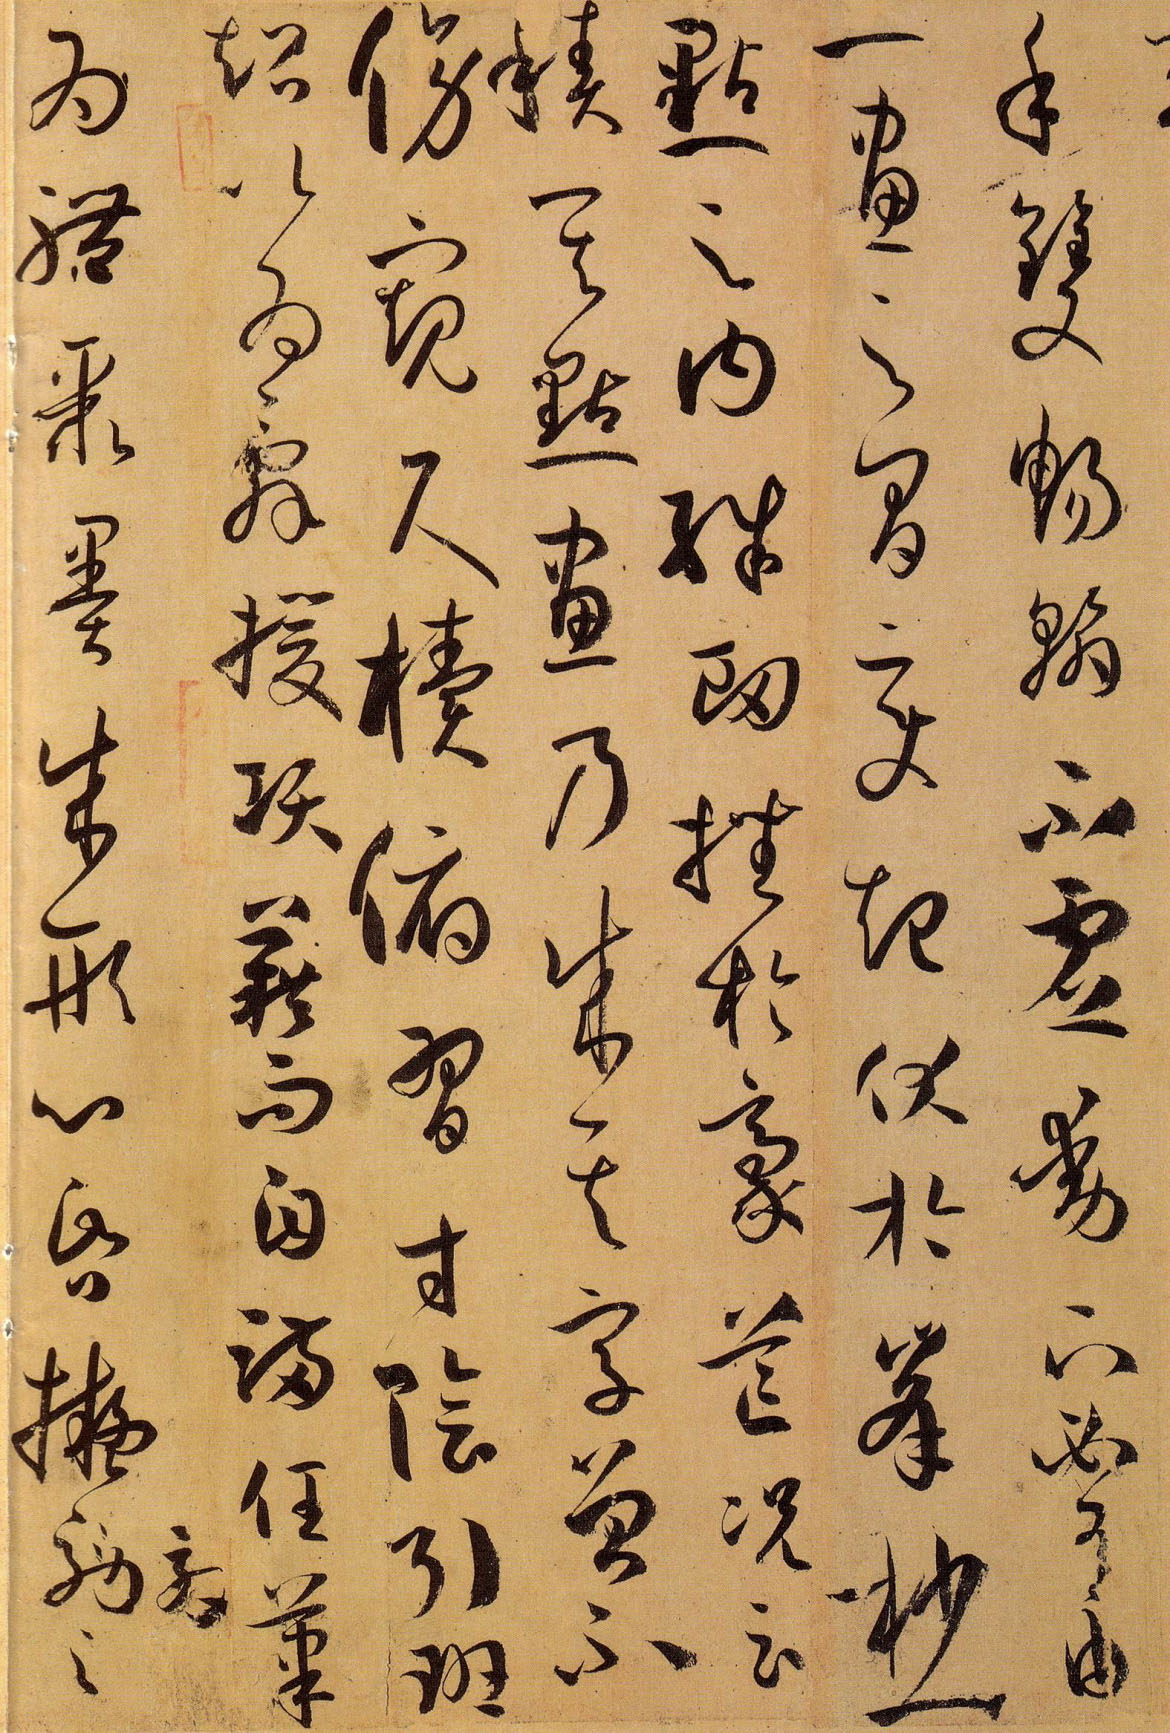 手雙暢翰不虛動下必有由
一畫之間變起伏於峯杪一
點之內殊衂挫於豪芒況云
積其點畫乃成其字曾不
傍窺尺櫝俯習寸陰引班
超以為辭援項籍而自滿任筆
為體聚墨成形心昏擬效之